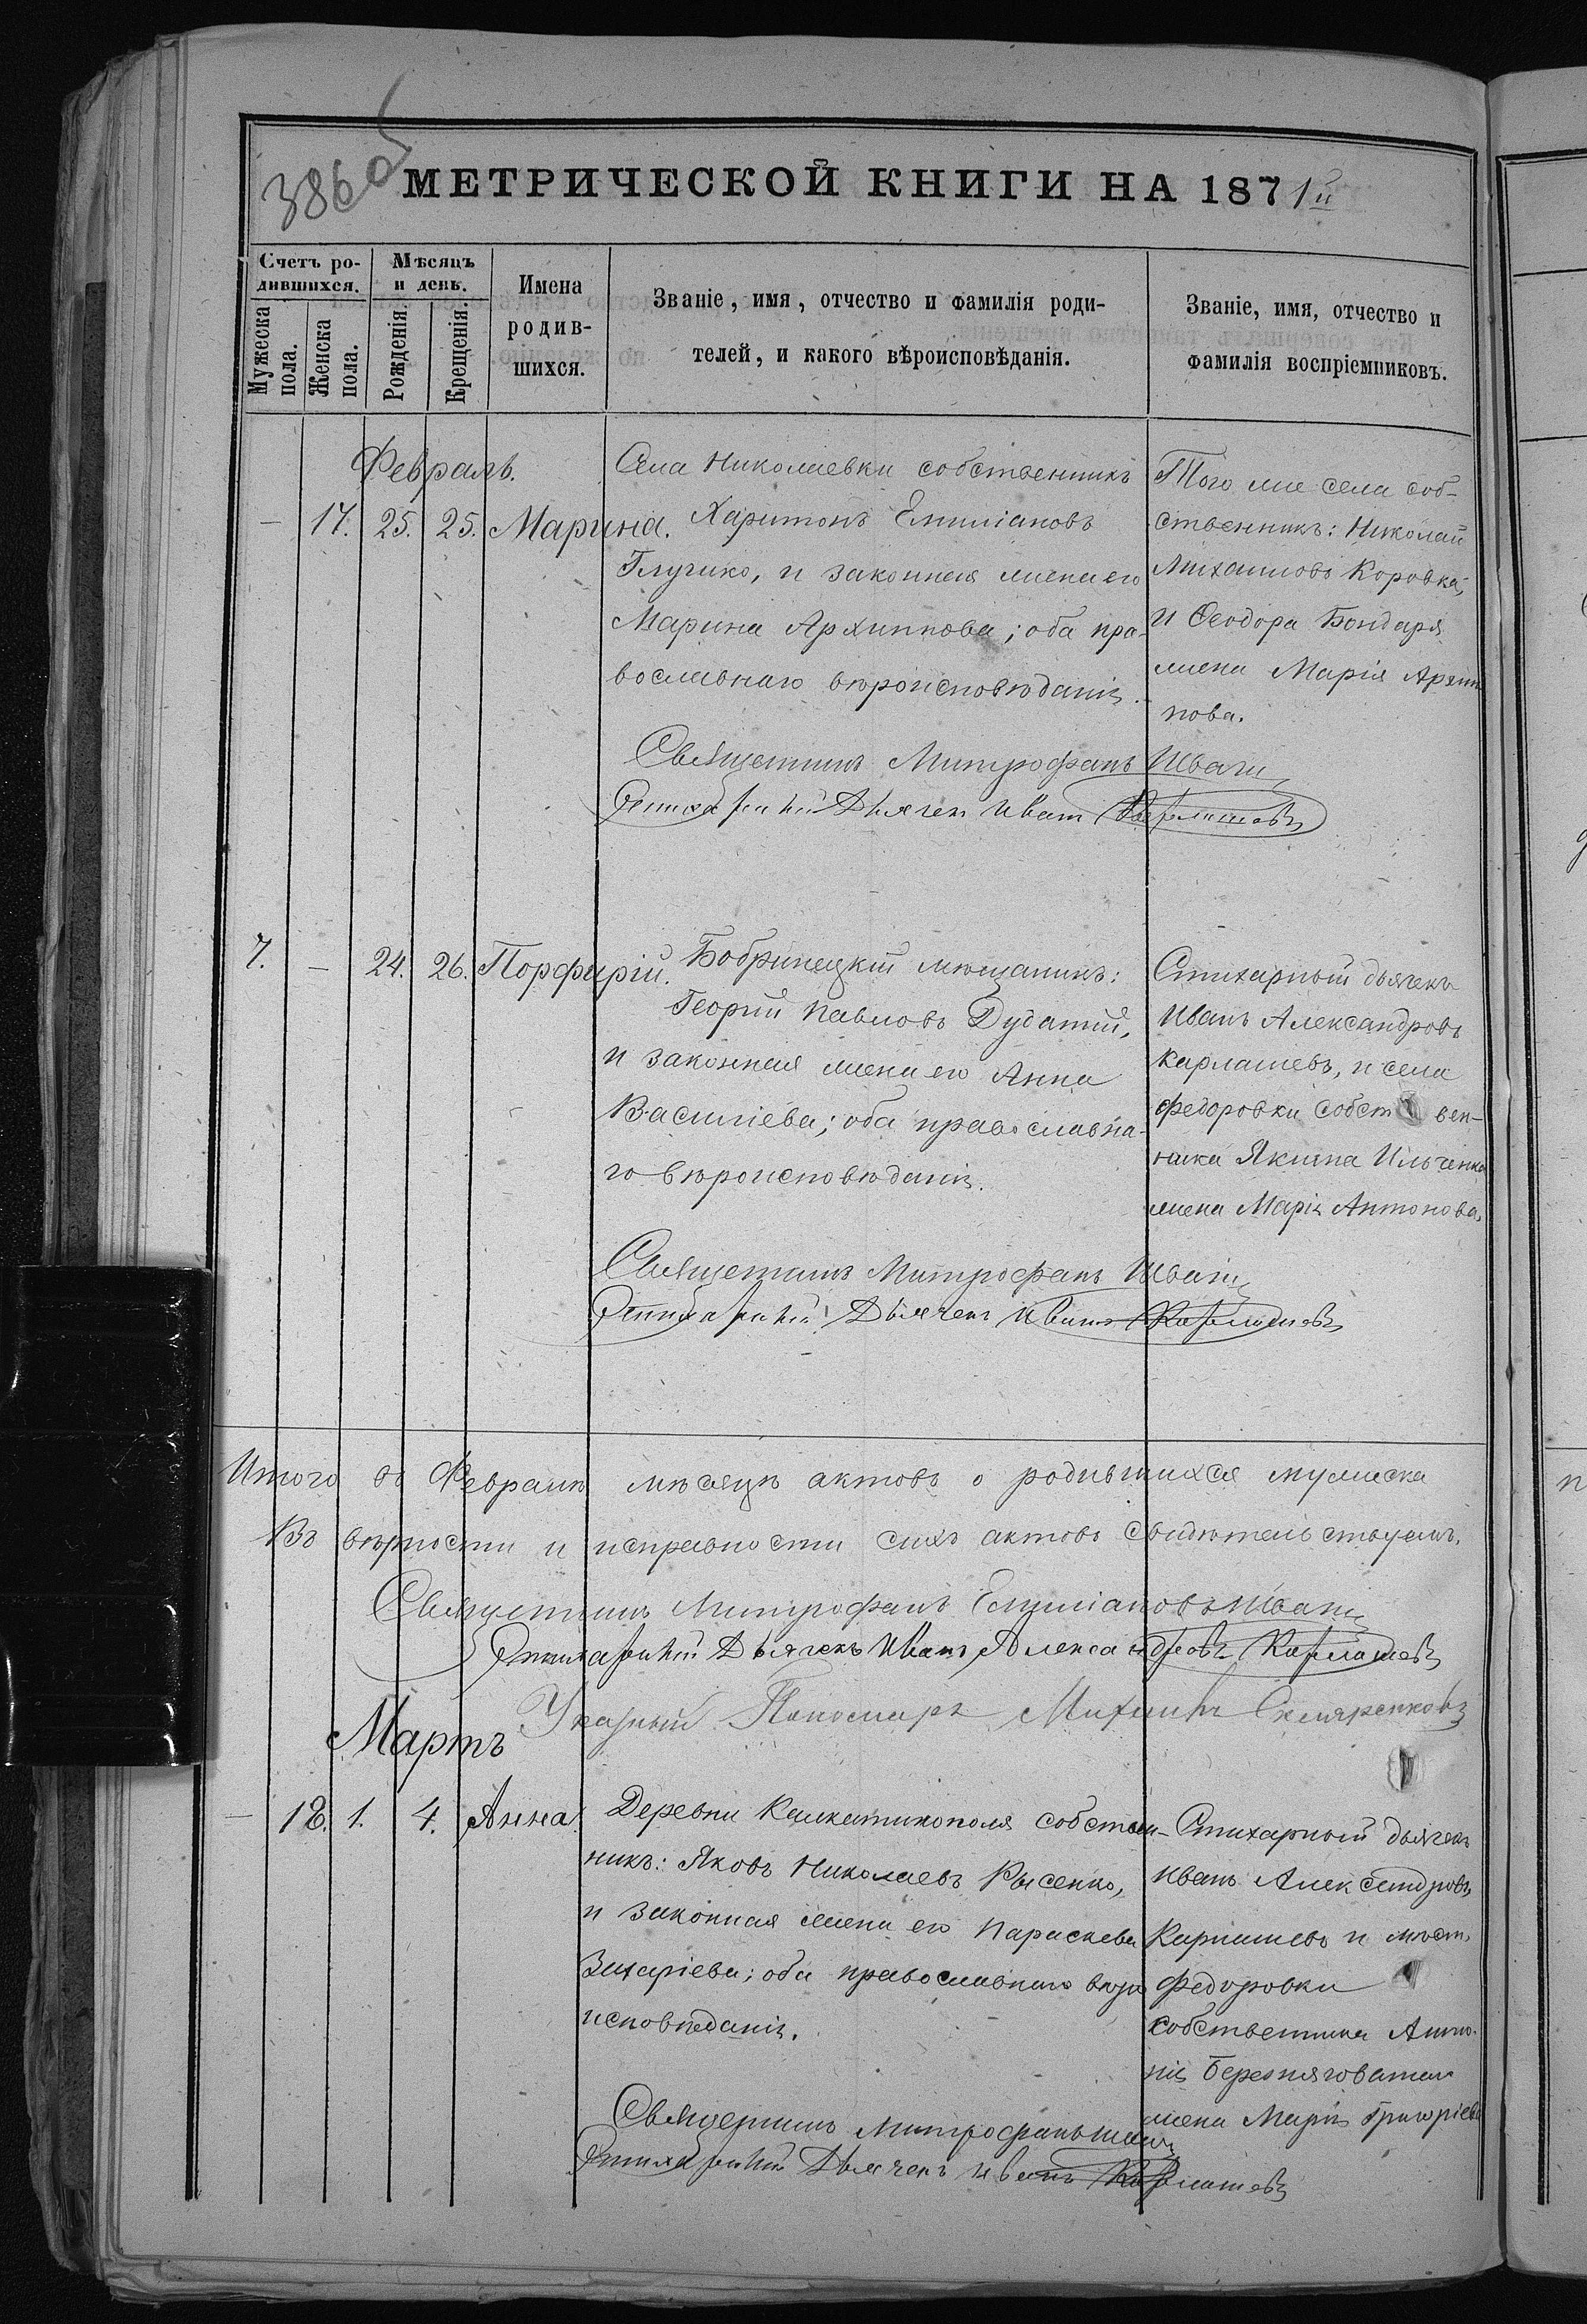 386об
МЕТРИЧЕСКОЙ КНИГИ НА 1871й
Счетъ ро-
дившихся.
Мужеска
пола.
Женска
пола.
Мѣсяцъ
и день.
Рожденія.
Крещенія.
Имена
родив-
шихся.
Званіе, имя, отчество и фамилія роди-
телей, и какого вѣроисповѣданія.
Званіе, имя, отчество и
фамилія воспріемниковъ.
Февраль.
— 17. 25. 25. Марина.
Села Николаевки собственникъ
Харитонъ Емиліановъ
и законная жена его
Марина Архиппова; оба пра-
вославнаго вѣроисповѣданія.
Того же села соб-
ственникъ: Николай
Михаиловъ Коровка,
и Ѳеодора Бондаря
жена Марія Архип
пова.
Священникъ Митрофанъ
Стихарный Дьячекъ Иванъ Карлашевъ
7. — 24. 26. Порфирій.
Бобринецкій мѣщанинъ:
Георгій Павловъ
и законная жена его Анна
Василіева; оба православна-
го вѣроисповѣданія.
Стихарный дьячекъ
Иванъ Александровъ
Карлашевъ, и села
Федоровки собст вен-
ника Якима Ильченка
жена Марія Антонова.
Священникъ Митрофанъ
Стихарный Дьячекъ Иванъ Карлашевъ
Итого въ Февралѣ мѣсяцѣ актовъ о родившихся мужеска
Въ вѣрности и исправности сихъ актовъ свидѣтельствуемъ.
Священникъ Митрофанъ Емиліановъ
Стихарный Дьячекъ Иванъ Александровъ Карлашевъ
Указный Пономарь Михаилъ Скляренковъ
Мартъ
— 18. 1. 4. Анна.
Деревни собствен-
никъ: Яковъ Николаевъ
и законная жена его Параскева
Захаріева; оба православнаго вѣро
исповѣданія.
Стихарный дьячекъ
Иванъ Александровъ
Карлашевъ и мѣст.
Федоровки
собственника Анто-
нія
жена Марія Григоріева
Священникъ Митрофанъ
Стихарный Дьячекъ Иванъ Карлашевъ